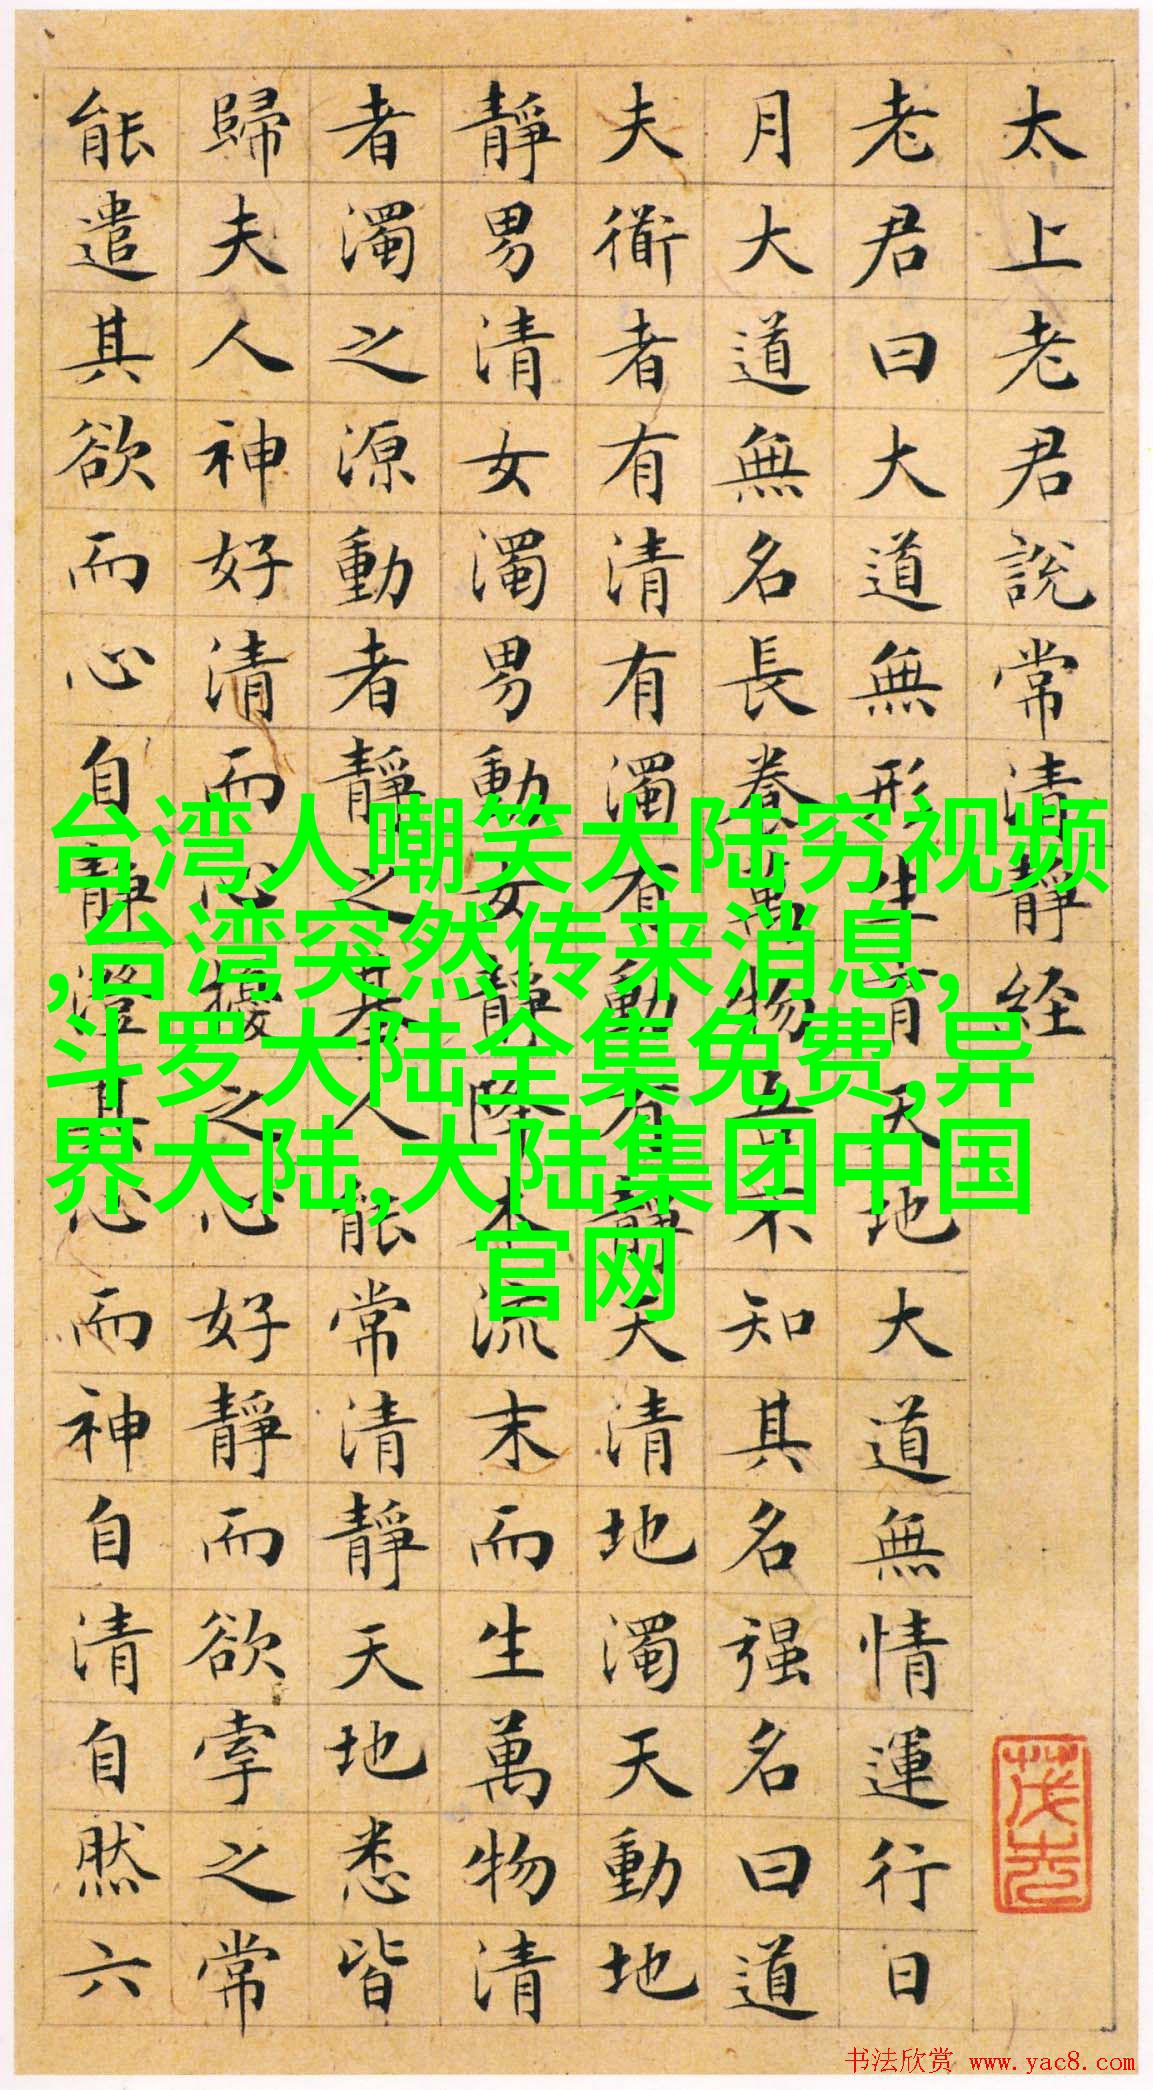 太上老君說常清靜经
老君曰大道無形生育天地大道無情運行日
月大道無名長養萬物吾不知其名强名曰道
夫衜者有清有濁有動有靜天清地濁天動地
靜男清女濁男動女靜降本流末而生萬物清
者濁之源動者靜之基人能常清靜天地悉皆
歸夫人神好清而心擾之心好靜而欲牽之常
能遣其欲而心自靜澄其心而神自清自然六
台湾人嘲笑大陆穷视频
,台湾突然传来消息,
斗罗大陆全集免费,异
界大陆,大陆集团中国
官网
书法欣赏 www.yac8.com